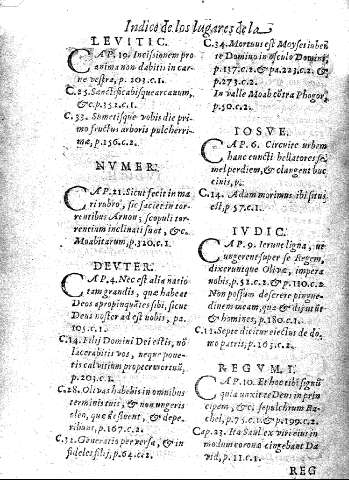 Indice de los lugares de la
LEVITIC.
CAP. 19. Incissionem pro
anima non dabitis in car
ne vestra, p. 203.c.1.
C.25. Sanctificabisque arcauum,
&c. p.352.c.1.
C.33. Sumetisque vobis die pri
mo fructus arboris pulcherri-
mæ, p.156.c.2.
NVMER.
CAP. 21. Sicut fecit in ma
ri rubro, sic faciet in tor-
rentibus Arnon, scopuli tor-
rentium inclinati sunt, &c.
Moabitarum, p.320.c.1.
DEVTER.
CAP. 4. Nec est alia natio
tam grandis, quæ habeat
Deos apropinquātes sibi, sicut
Deus noster adest nobis, pa.
105.c.1.
C.14. Filij Domini Dei estis, nō
lacerabitis vos, neque pone-
tis calvitium propter mortuū,
p.203.c.1.
C.28. Olivas habebis in omnibus
terminis tuis, & non ungeris
oleo, quæ defluent, & depe-
ribunt, p.167.c.2.
C.32. Generatio perversa, & in
fideles filij, p.64.c.2.
C.34. Mortuus est Moyses iuben
te Domino in osculo Domini,
p.137.c.2. & pa.223.c.2. &
p.273.c.2.
In valle Moab cōtra Phogor,
p.50.c.2.
IOSVE.
CAP. 6. Circuite urbem
hanc cuncti bellatores se-
mel per diem, & clangent buc
cinis, p.
C.14. Adam maximus ibi situs
est, p 57.c.1.
IVDIC.
CAP. 9. Ierunt ligna, ut
ungerent super se Regem,
dixeruntque Olivæ, impera
nobis, p.52.c.2. & p.110.c.2.
Non possum deserere pingue-
dinem meam, qua & dij utūt
& homines, p.180.c.1.
C.11. Septe dicitur eiectus de do
mo patris, p.165.c.2.
REGVM. I.
CAP. 10. Et hoc tibi signū
quia unxit te Deus in prin
cipem, &c; sepulchrum Ra-
chel, p.75.c.1. & p.199.c.2.
Cap. 23. Ita Saul ex vires eius in
modum corona cingebant Da
vid, p.11.c.1.
REG